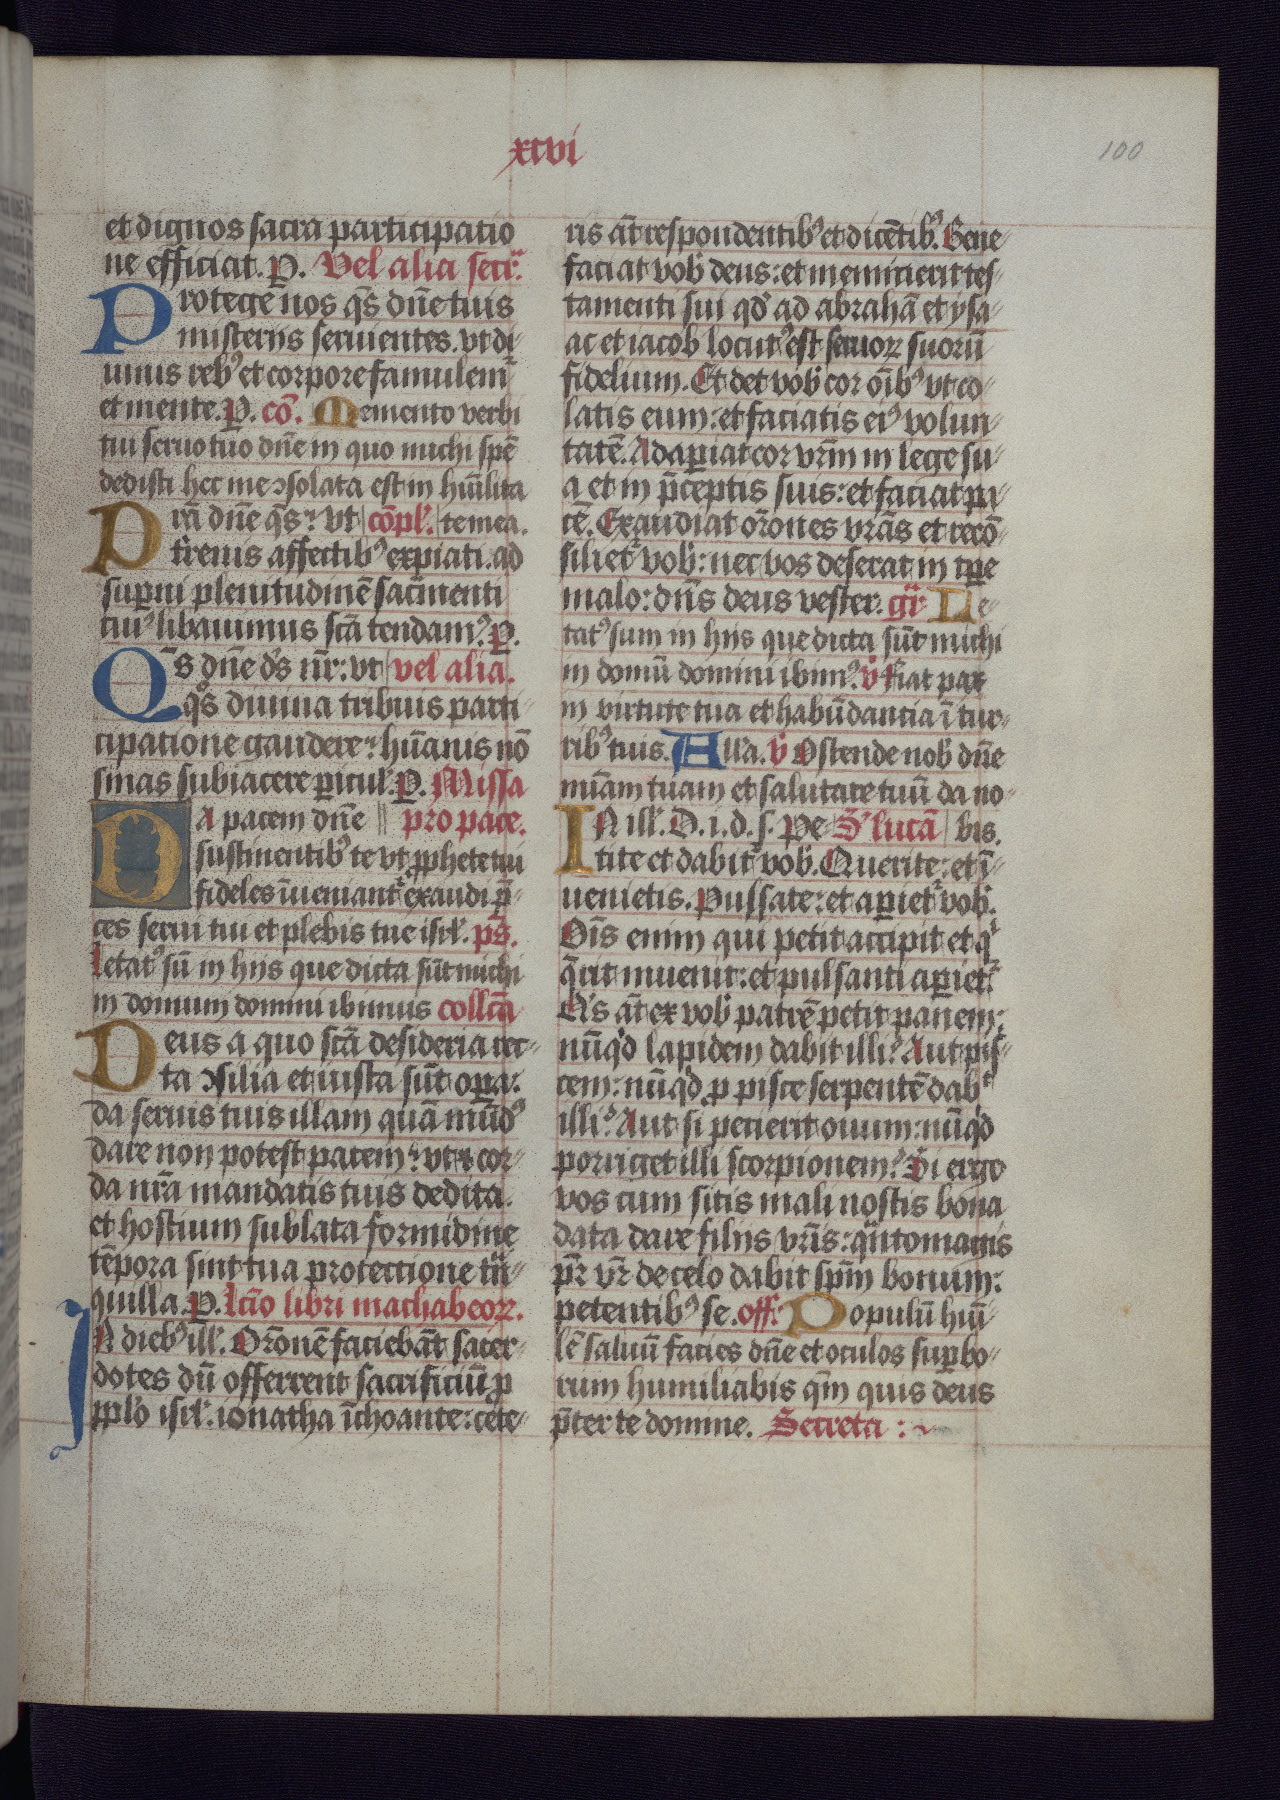 xcvi
100
et dignos sacra participatio
ne efficiat. P. Vel alia secr̄.
Protege nos q̄s dn̄e tuis
misterijs seruientes. vt di
uinis reb᷒ et corpore famulem̄
et mente. P. cō. Memento verbi
tui seruo tuo dn̄e in quo michi spē
dedisti hec me ꝯsolata est in hūilita
Prā dn̄e q̄s: vt cōpl'. te mea.
t̄renis affectib᷒ expiati. ad
suꝑni plenitudinē sac̄menti
cui᷒ libauimus sc̄a tendam᷒. P.
Q̄s dn̄e d̄s nr̄: vt vel alia.
qͦs diuina tribuis parti
cipatione gaudere: hūanis nō
sinas subiacere ꝑicul'. P. Missa
DA pacem dn̄e pro pace.
sustinentib᷒ te vt ꝓphete tui
fideles īueniant᷑ exaudi p̄
ces serui tui et plebis tue isrl'. ps̄.
Letat᷒ sū in hijs que dicta sūt michi
in domum domini ibimus coll̄cā
Deus a quo sc̄a desideria rec
ta ꝯsilia et iusta sūt oꝑa:
da seruis tuis illam quā mūd᷒
dare non potest pacem: vt et cor
da nr̄a mandatis tuis dedita.
et hostium sublata formidine
tēpora sint tua protectione t̄n
quilla. P. Lc̄io libri machabeoꝝ.
IN dieb᷒ ill'. Or̄onē faciebāt sacer
dotes dū offerrent sacrificiū ꝓ
pplo isrl'. ionatha īchoante: cete
ris āt respondentib᷒ et dicētib᷒. Bene
faciat vob̄ deus: et meminerit tes
tamenti sui qd̄ ad abrahā et ysa
ac et iacob locut᷒ est seruoꝝ suorū
fidelium. Et det vob̄ cor oīb᷒ vt co
latis eum: et faciatis ei᷒ volun
tatē. Adaꝑiat cor vr̄m in lege su
a et in p̄ceptis suis: et faciat pa
cē. Exaudiat or̄ones vr̄as et recō
siliet᷑ vob̄: nec vos deserat in tꝑe
malo: dn̄s deus vester. gr̄. Le
tat᷒ sum in hijs que dicta sūt michi
in domū domini ibim᷒. v̄ Fiat pax
in virtute tua et habūdantia ī tur
rib᷒ tuis. All'a. v̄ Ostende nob̄ dn̄e
mīam tuam et salutare tuū da no
IN ill'. D. i. d. s. Pe S' lucā bis.
tite et dabit᷑ vob̄. Querite: et ī
uenietis. Pulsate: et aꝑiet᷑ vob̄.
Oīs enim qui petit accipit et qͥ
q̄rit inuenit: et pulsanti aꝑiet᷑.
Qͥs āt ex vob̄ patrē petit panem:
nūqͥd lapidem dabit illi? Aut pis
cem: nūqͥd ꝓ pisce serpentē dabᵗ
illi? Aut si pecierit ouum: nūqͥd
porriget illi scorpionem? Si ergo
vos cum sitis mali nostis bona
data dare filijs vr̄is: q̄nto magis
pr̄ vr̄ de celo dabit sp̄m bonum:
petentib᷒ se. off. Populū hūi
lē saluū facies dn̄e et oculos suꝑbo
rum humiliabis qm̄ quis deus
p̄ter te domine. Secreta :~